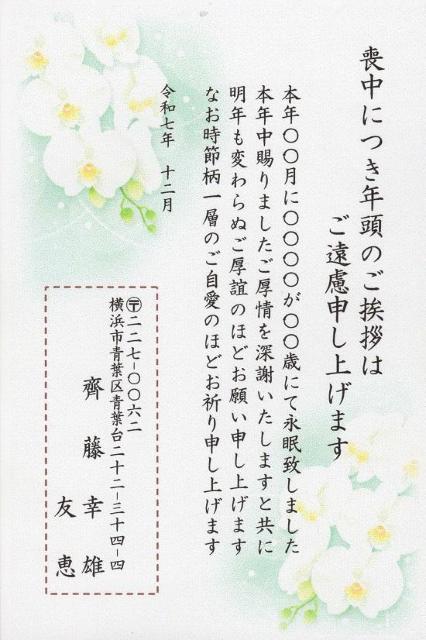 喪中につき年頭のご挨拶は
ご遠慮申し上げます
本年〇〇月に〇〇〇〇が〇〇歳にて永眠致しました
本年中賜りましたご厚情を深謝いたしますと共に
明年も変わらぬご厚誼のほどお願い申し上げます
なお時節柄一層のご自愛のほどお祈り申し上げます
令和七年 十二月
〒二二七-〇〇六二
横浜市青葉区青葉台二十二-三十四-四
齊藤幸雄
友恵